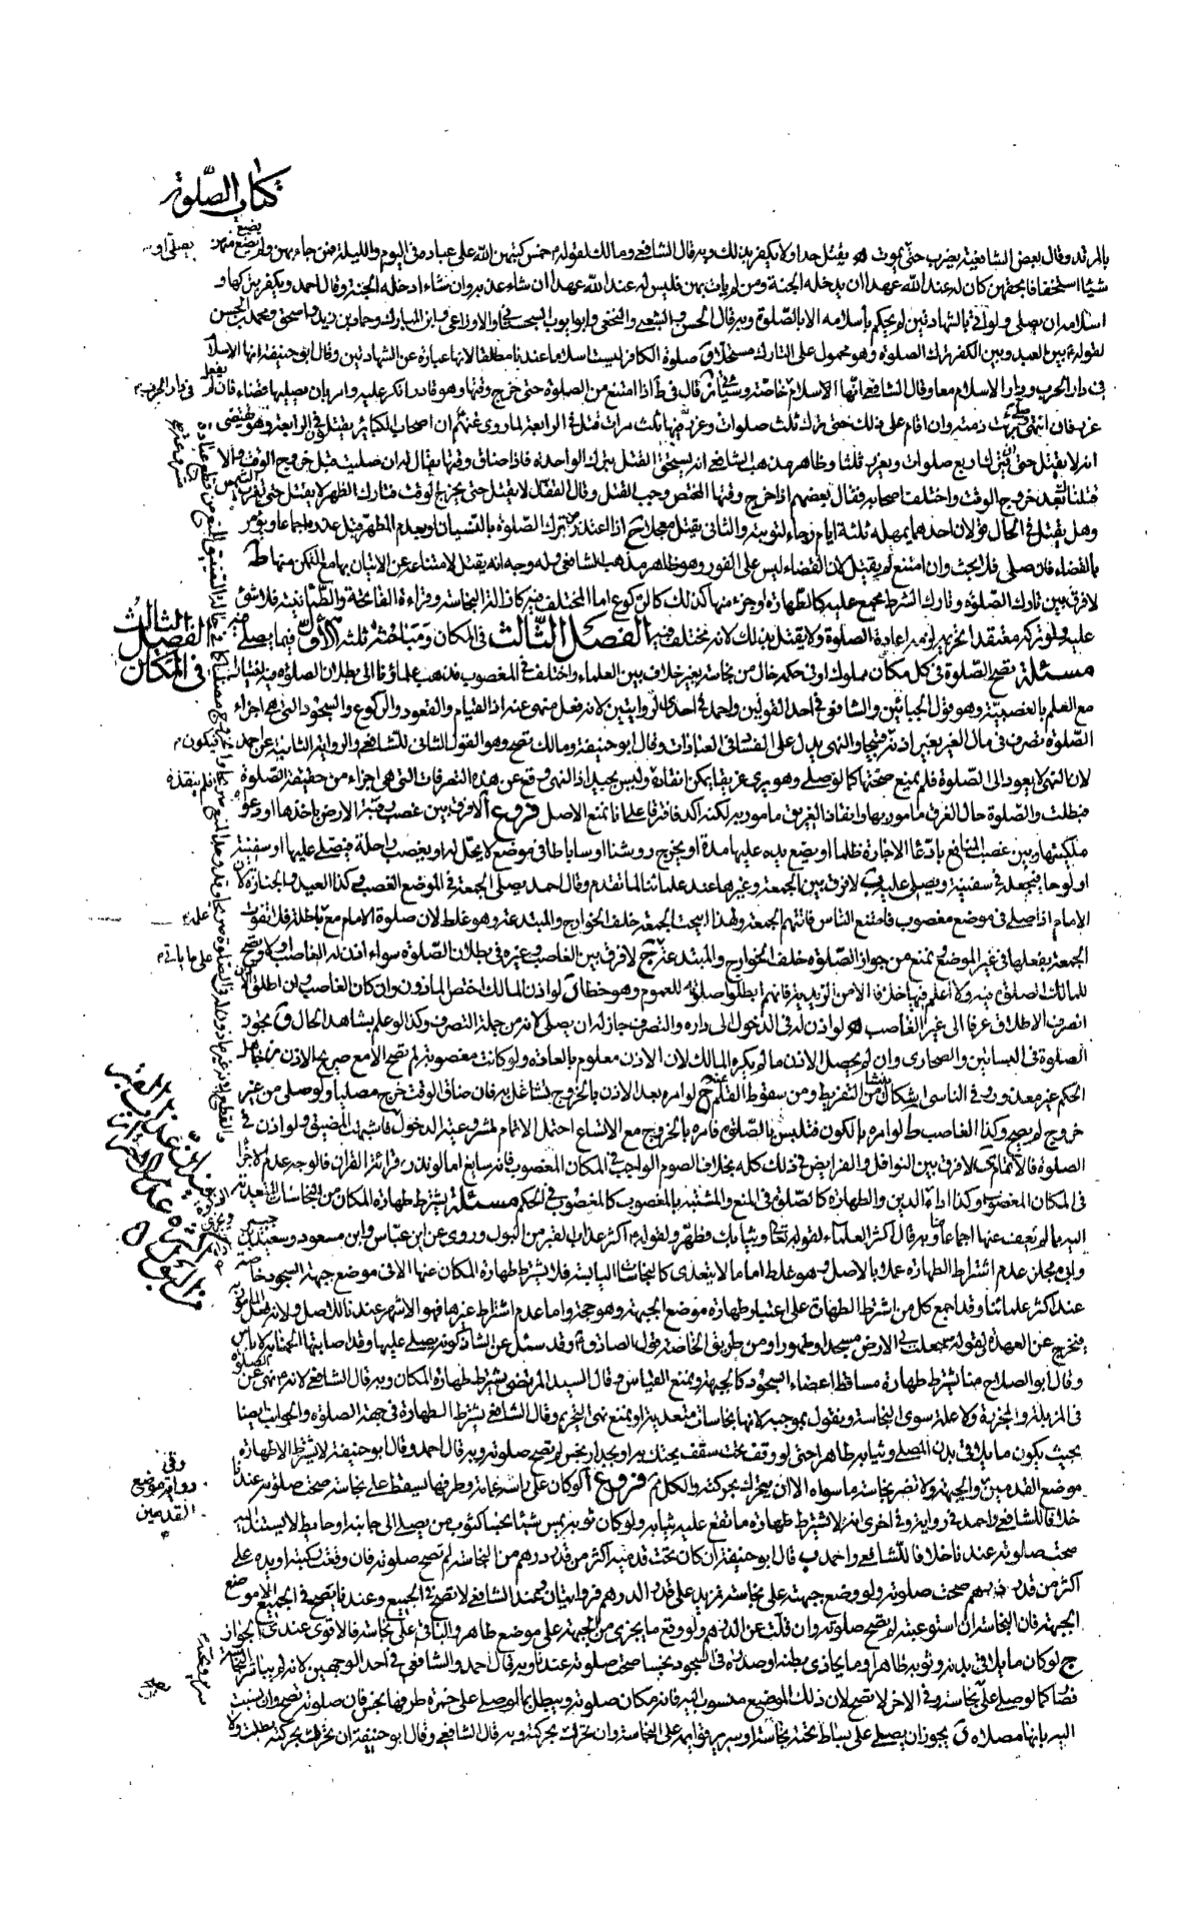 كتاب الصلوة
بالمرتد وقال بعض الشافعية يضرب حتى يموت يقتل حدا ولا يكفر بذلك وبه قال الشافعي ومالك لقوله خمس كتبهن الله على عباده في اليوم والليلة فمن جاء بهن ولم يضيع منهن
شيئا استخفافا بحقهن كان له عند الله عهدا ان يدخله الجنة ومن لم يات بهن فليس له عند الله عهد ان شاء عذبه وان شاء ادخله الجنة وقال احمد ويكفر بتركها و
اسلامه ان يصلي ولو اتى بالشهادتين لم يحكم باسلامه الا بالصلوة وبه قال الحسن والشعبي والنخعي وايوب السجستاني والاوزاعي وابن المبارك وحماد بن زيد واسحق ومحمد بن الحسن
لقوله بين العبد وبين الكفر ترك الصلوة وهو محمول على التارك مستحلا صلوة الكافر ليست اسلاما عندنا مطلقا لانها عبارة عن الشهادتين وقال ابو حنيفة انها الاسلام
في دار الحرب ودار الاسلام معا وقال الشافعي انها الاسلام خاصة قال في اذا امتنع من الصلوة حتى خرج وقتها وهو قادر انكر عليه وامر بان يصليها قضاء فان لم يفعل
عزر فان انتهى برئت ذمته وان اقام على ذلك حتى ترك ثلث صلوات وعزر فيها ثلث مرات قتل في الرابعة لما روي عنهم ان اصحاب الكبائر يقتلون في الرابعة وهو يقتضي
انه لا يقتل حتى يترك اربع صلوات ويعزر ثلثا وظاهر مذهب الشافعي انه يستحق القتل بترك الواحدة فاذا ضاق وقتها يقال له ان صليت قبل خروج الوقت والا
قتلناك بعد خروج الوقت واختلف اصحابه فقال بعضهم اذا خرج وقتها المختص وجب القتل وقال القفال لا يقتل حتى يخرج لوقت فتارك الظهر لا يقتل حتى تغرب الشمس
وهل يقتل في الحال قولان احدهما يمهله ثلثة ايام رجاء لتوبته والثاني يقتل معجلا اذا اعتذر من ترك الصلوة بالنسيان او بعدم المطهر قبل عذره اجماعا ويؤمر
بالقضاء فان صلى فلا بحث وان امتنع لم يقتل لان القضاء ليس على الفور وهو ظاهر مذهب الشافعي وله وجه انه يقتل لامتناعه عن الاتيان بها مع التمكن منها ط
لا فرق بين تارك الصلوة وتارك الشرط مجمع عليه كالطهارة او جزء منها كذلك كالركوع اما المختلف فيه كازالة النجاسة وقراءة الفاتحة والطمانينة فلا شئ
عليه ولو تركه معتقدا تحريمه لزمه اعادة الصلوة ولا يقتل بذلك لانه مختلف فيه الفصل الثالث في المكان ومباحثه ثلثة الاول فيما يصلى فيه
مسئلة تصح الصلوة في كل مكان مملوك او في حكمه خال من نجاسة بغير خلاف بين العلماء واختلف في المغصوب فذهب علماؤنا الى بطلان الصلوة فيه اختيارا
مع العلم بالغصبية وهو قول الجبائيين والشافعي في احد القولين واحمد في احدى الروايتين لانه فعل منهي عنه اذ القيام والقعود والركوع والسجود التي هي اجزاء
الصلوة تصرف في مال الغير بغير اذنه قبيحا والنهي يدل على الفساد في العبادات وقال ابو حنيفة ومالك تصح وهو القول الثاني للشافعي والرواية الثانية عن احمد
لان النهي لا يعود الى الصلوة فلم يمنع صحتها كما لو صلى وهو يرى غريقا يمكن انقاذه وليس بجيد اذ النهي وقع عن هذه التصرفات التي هي اجزاء من حقيقة الصلوة
فبطلت والصلوة حال الغرق مامور بها وانقاذ الغريق مامور به لكنه اكد فافترقا على انا نمنع الاصل فروع ا لا فرق بين غصب رقبة الارض باخذها او دعواه
ملكيتها وبين غصب المنافع بادعاء الاجارة ظلما او يضع يده عليها مدة او يخرج روشنا او ساباطا في موضع لا يحل له او يغصب راحلة فيصلي عليها او سفينة
او لوحا فيجعله في سفينة ويصلي عليه ب لا فرق بين الجمعة وغيرها عند علمائنا لما تقدم وقال احمد يصلي الجمعة في الموضع الغصب وكذا العيد والجنازة لان
الامام اذا صلى في موضع مغصوب فامتنع الناس فاتتهم الجمعة ولهذا ابيحت الجمعة خلف الخوارج والمبتدعة وهو غلط لان صلوة الامام معه باطلة فلا تفوت
الجمعة بفعلها في غير الموضع ونمنع من جواز الصلوة خلف الخوارج والمبتدعة ج لا فرق بين الغاصب وغيره في بطلان الصلوة سواء اذن له الغاصب اولا وتصح
للمالك الصلوة فيه ولا اعلم فيها خلافا الا من الزيدية فانهم ابطلوا صلوته للعموم وهو خطا د لو اذن المالك اختص الماذون وان كان الغاصب ان اطلق الاذن
انصرف الاطلاق عرفا الى غير الغاصب ه لو اذن له في الدخول الى داره والتصرف جاز له ان يصلي لانه من جملة التصرف وكذا لو علم بشاهد الحال و تجوز
الصلوة في البساتين والصحارى وان لم يحصل الاذن ما لم يكره المالك لان الاذن معلوم بالعادة ولو كانت مغصوبة لم تصح الا مع صريح الاذن ز جاهل
الحكم غير معذور وفي الناسي اشكال ينشا من التفريط ومن سقوط القلم ح لو امره بعد الاذن بالخروج تشاغل به فان ضاق الوقت خرج مصليا ولو صلى من غير
خروج لم يصح وكذا الغاصب ط لو امره بالكون فتلبس بالصلوة فامره بالخروج مع الاتساع احتمل الاتمام لمشروعية الدخول فاشبهت المضيق ولو اذن في
الصلوة فالاتمام ي لا فرق بين النوافل والفرايض في ذلك كله بخلاف الصوم الواجب في المكان المغصوب فانه سايغ اما لو نذر قرائة القران فالوجه عدم الاجزاء
في المكان المغصوب وكذا اداء الدين والطهارة كالصلوة في المنع والمشتبه بالمغصوب كالمغصوب في الحكم مسئلة يشترط طهارة المكان من النجاسات المتعدية
اليه ما لم يعف عنها اجماعا وبه قال اكثر العلماء لقوله تعالى وثيابك فطهر ولقوله اكثر عذاب القبر من البول وروي عن ابن عباس وابن مسعود وسعيد بن جبير
وابي مجلز عدم اشتراط الطهارة عملا بالاصل وهو غلط اما ما لا يتعدى كالنجاسات اليابسة فلا يشترط طهارة المكان عنها الا في موضع جبهة السجود خاصة
عند اكثر علمائنا وقد اجمع كل من اشترط الطهارة على اعتبار طهارة موضع الجبهة وهو حجة واما عدم اشتراط غيرها فهو الاشهر عندنا للاصل ولانه فعل المامور به
فيخرج عن العهدة لقوله جعلت لي الارض مسجدا وطهورا ومن طريق الخاصة قول الصادق وقد سئل عن الشاذكونة يصلى عليها وقد اصابتها الجنابة لا باس
وقال ابو الصلاح منا يشترط طهارة مساقط اعضاء السجود كالجبهة ويمنع القياس وقال السيد المرتضى يشترط طهارة المكان وبه قال الشافعي لانه نهى عن الصلوة
في المزبلة والمجزرة ولا علة سوى النجاسة ويقول بموجبه لانها نجاسات متعدية او نمنع نهي التحريم وقال الشافعي يشترط الطهارة في جهة الصلوة والجهات ايضا
بحيث يكون ما يلاقي بدن المصلي وثيابه طاهرا حتى لو وقف تحت سقف يحتك به او بجدار نجس لم تصح صلوته وبه قال احمد وقال ابو حنيفة لا يشترط الا طهارة
موضع القدمين والجبهة ولا تضر نجاسة ما سواه الا ان يتحرك بحركته والكل فروع ا لو كان على راسه عمامة وطرفها يسقط على نجاسة صحت صلوته عندنا
خلافا للشافعي واحمد في رواية وفي اخرى انه لا يشترط طهارة ما تقع عليه ثيابه ولو كان ثوبه يمس شيئا نجسا كثوب من يصلي الى جانبه او حايط لا يستند اليه
صحت صلوته عندنا خلافا للشافعي واحمد ب قال ابو حنيفة ان كان تحت قدميه اكثر من قدر درهم من النجاسة لم تصح صلوته فان وقعت ركبته او يده على
اكثر من قدر درهم صحت صلوته ولو وضع جبهته على نجاسة تزيد على قدر الدرهم فروايتان وعند الشافعي لا تصح في الجميع وعندنا تصح في الجميع الا موضع
الجبهة فان النجاسة ان استوعبته لم تصح صلوته وان قلت عن الدرهم ولو وقع ما يجزي من الجبهة على موضع طاهر والباقي على نجاسة فالاقوى عندي الجواز
ج لو كان ما يلاقي بدنه وثوبه طاهرا وما يحاذي بطنه او صدره في السجود نجسا صحت صلوته عندنا وبه قال احمد والشافعي في احد الوجهين لانه لم يباشر النجاسة
فضا كما لو صلى على نجاسة وفي الاخر لا تصح لان ذلك الموضع منسوب اليه فانه مكان صلوته ويبطل بما لو صلى على خمرة طرفها نجس فان صلوته تصح وان نسبت
اليه بانها مصلاه د يجوز ان يصلي على بساط تحته نجاسة او سرير قوايمه على النجاسة وان تحركت بحركته وبه قال الشافعي وقال ابو حنيفة ان تحركت بحركته بطلت ولا
الفصل الثالث
في المكان
في دار الحرب
فيكون
فلم ينقذه
على ما ياتي
وفي
رواية موضع
القدمين